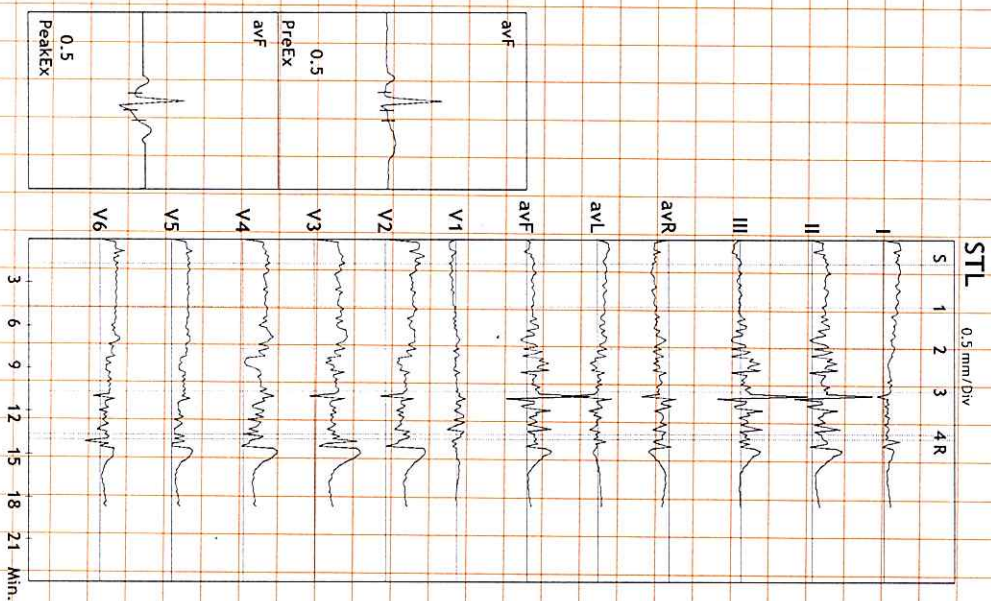 STL
0.5 mm/Div
S 1 2 3 4 R
I
II
III
avR
avL
avF
V1
V2
V3
V4
V5
V6
3 6 9 12 15 18 21 Min.
avF
0.5
PreEx
avF
0.5
PeakEx